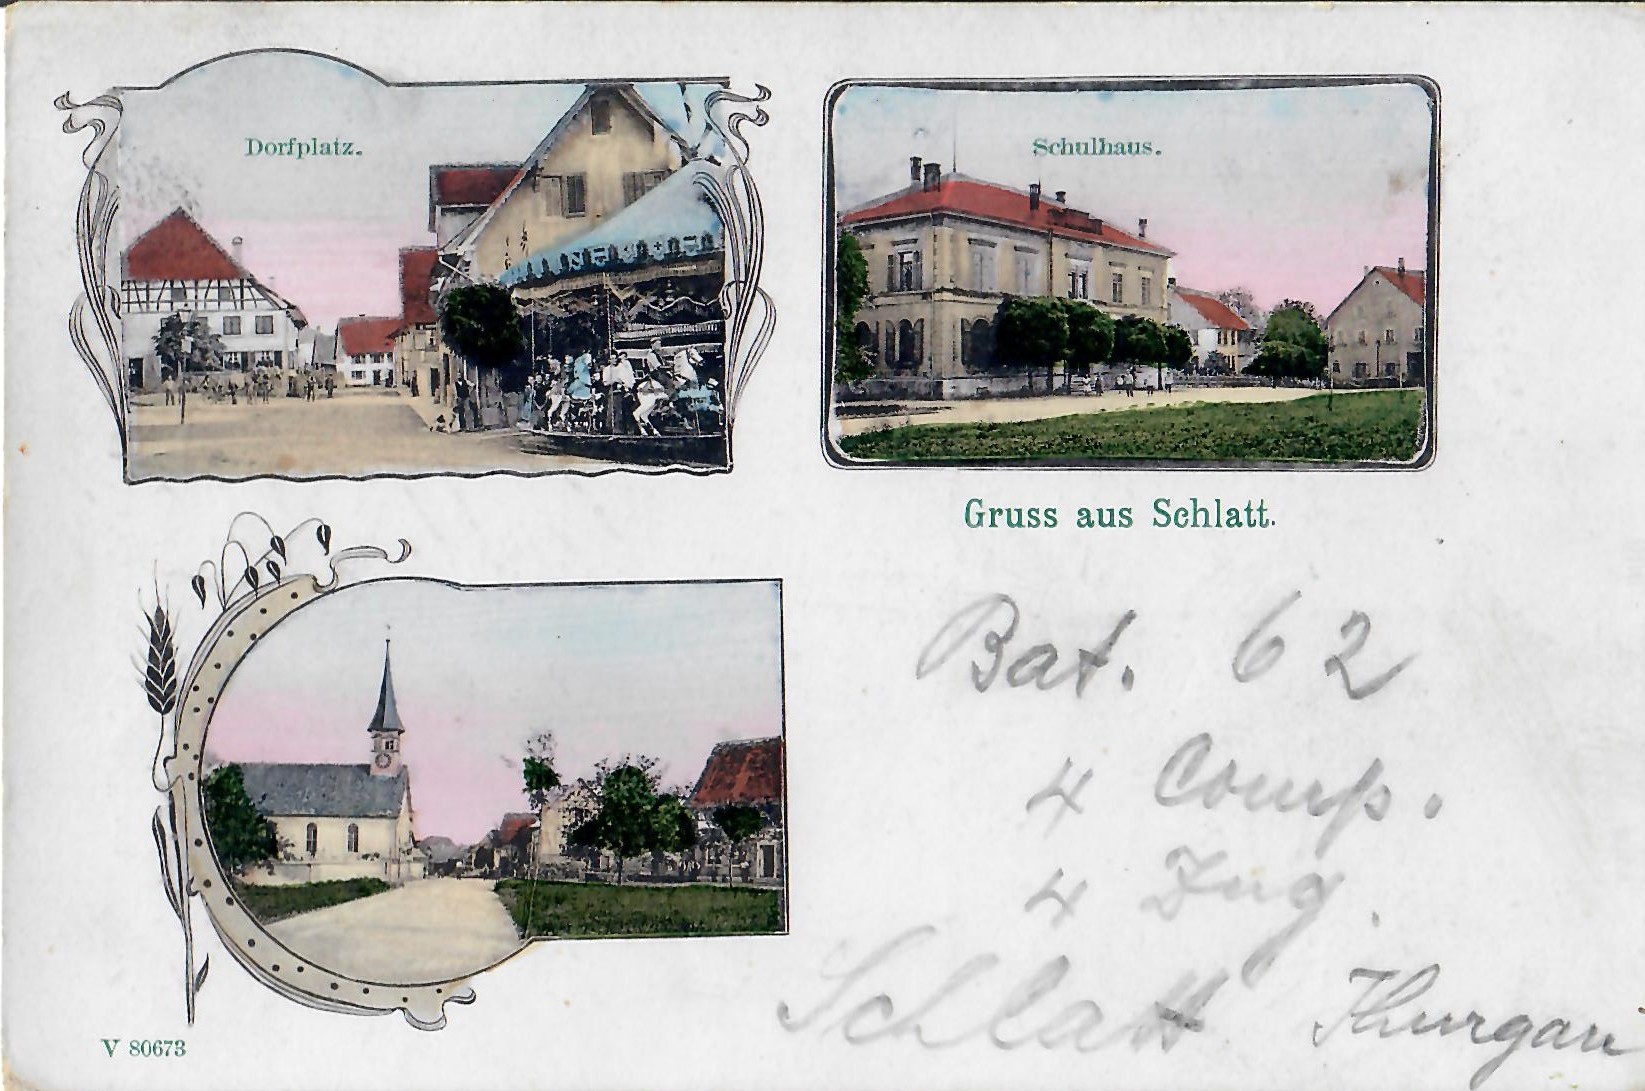 Dorfplatz.
Schulhaus.
Gruss aus Schlatt.
Bat. 62
4 Comp.
4 Zug.
Schlatt Thurgau
V 80673